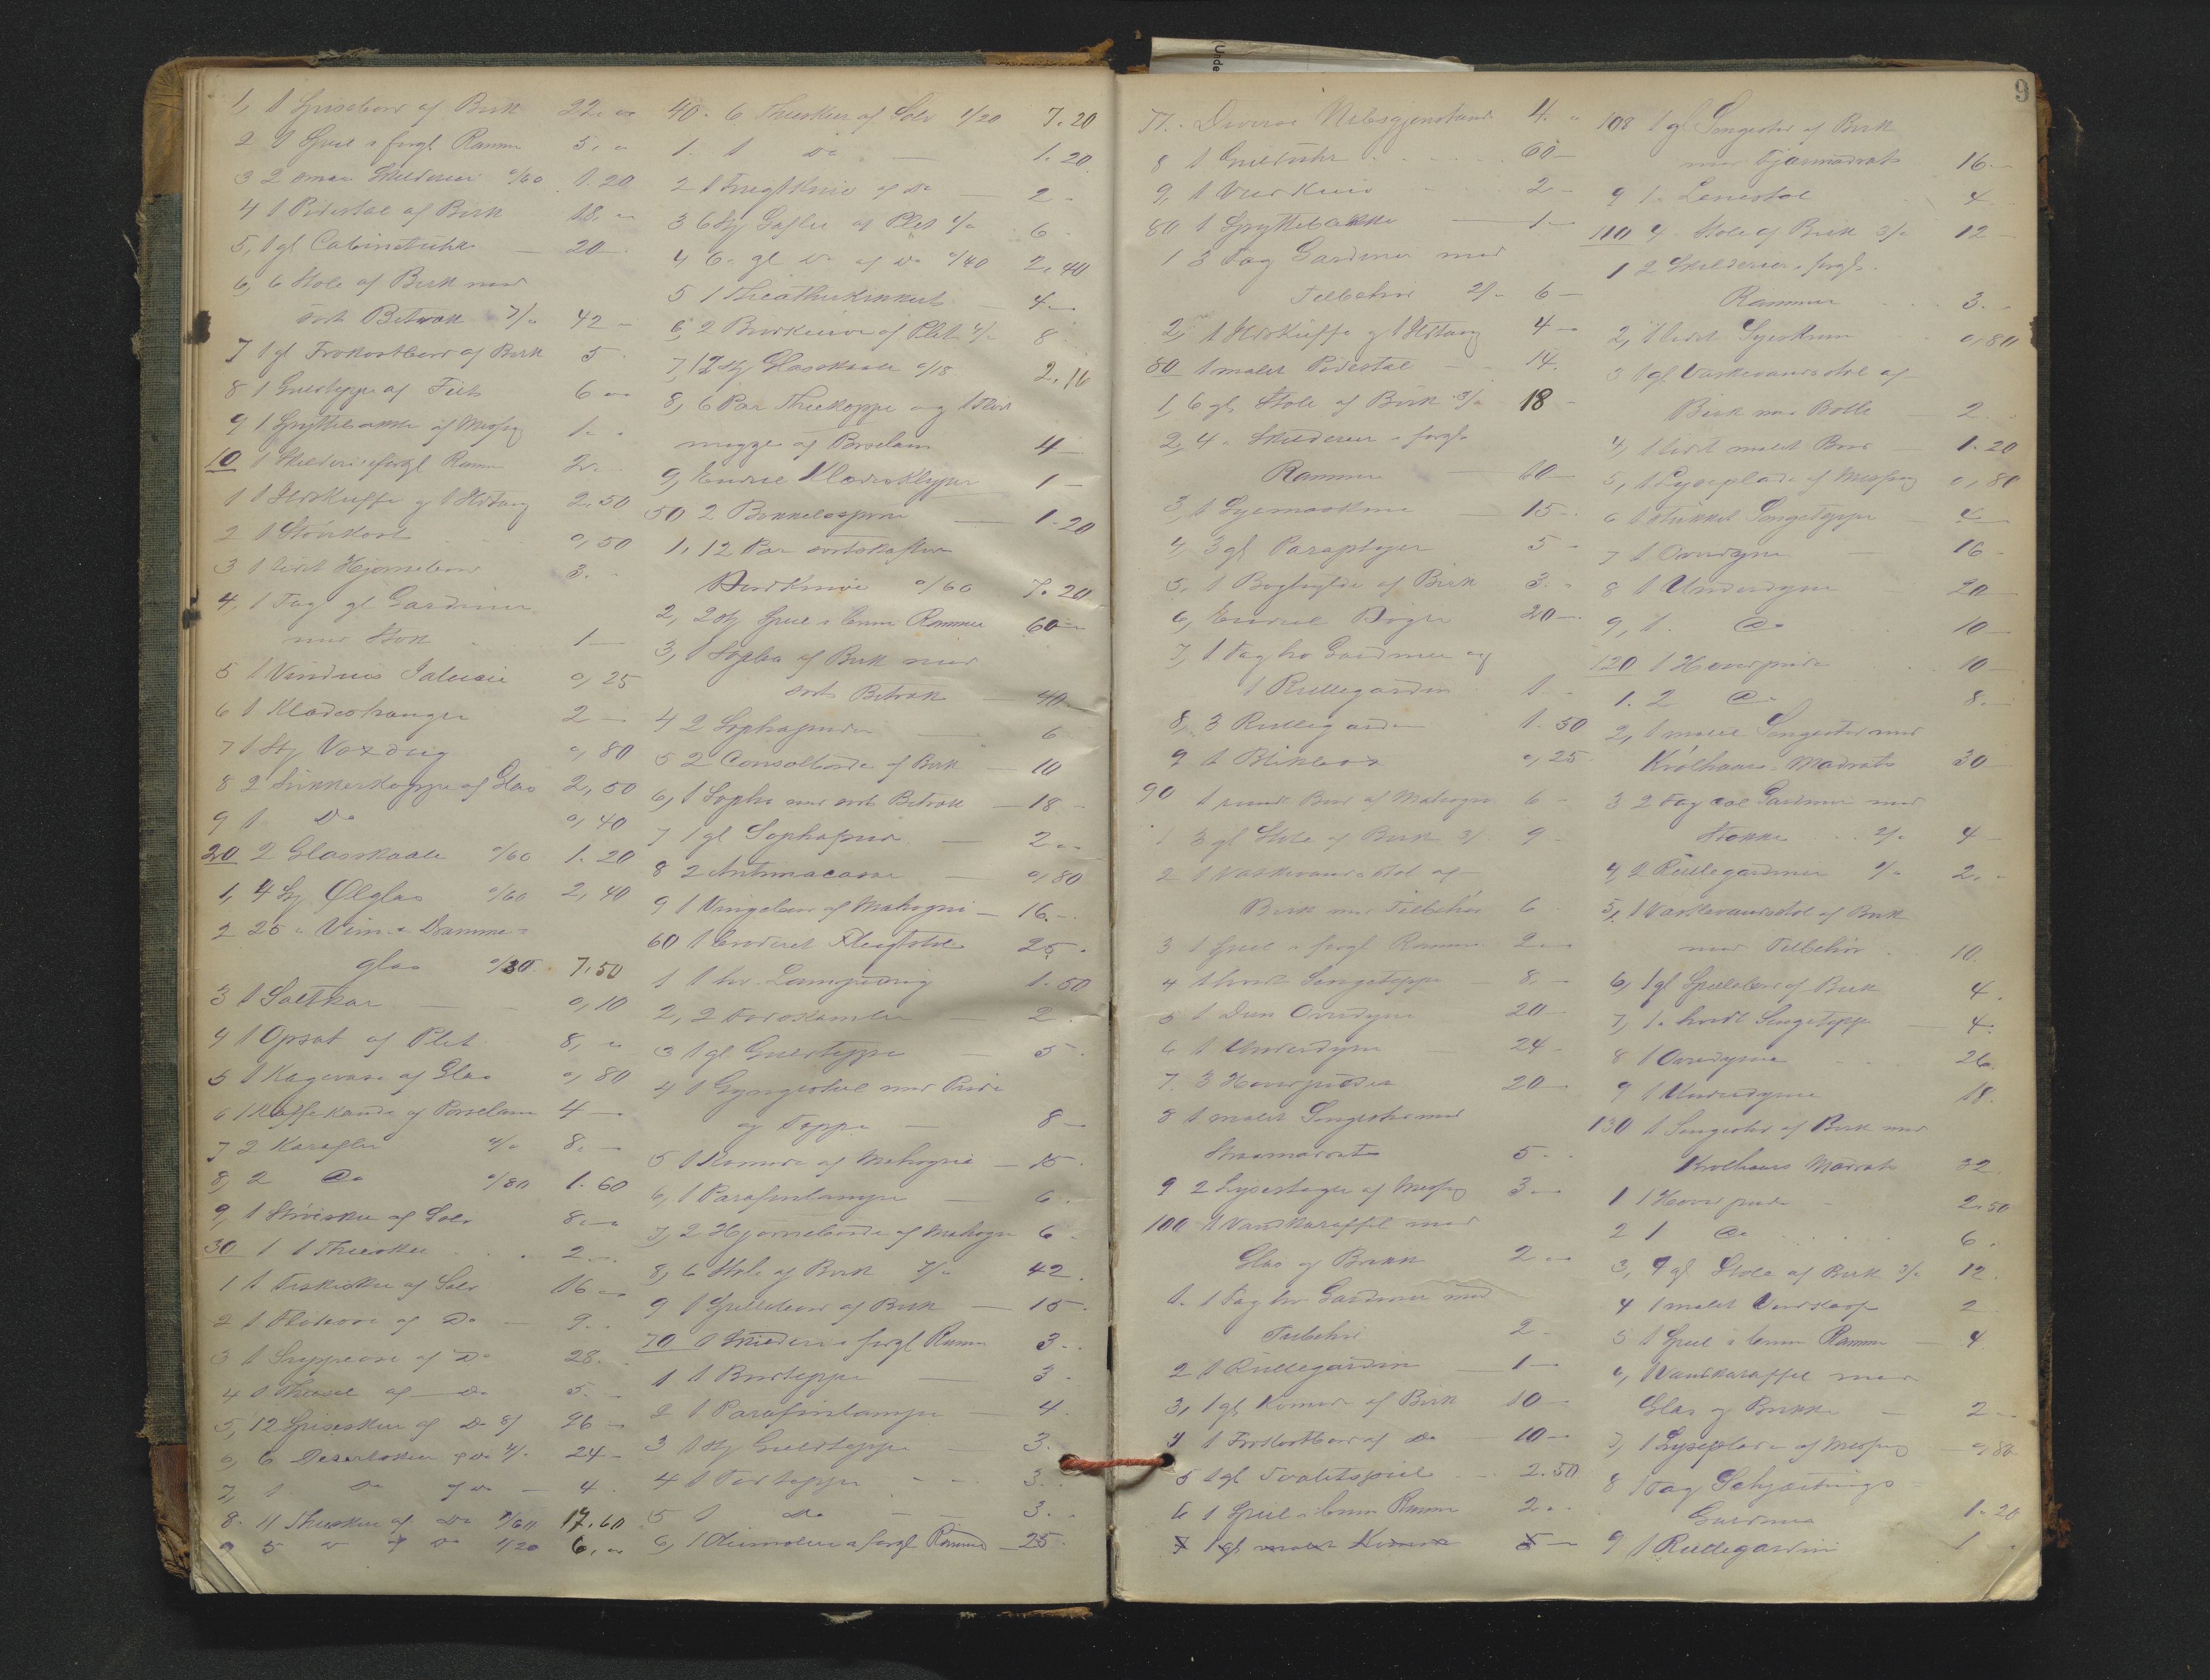 1, 1 Spisebord af Birk 22. "
2 1 Speil i forgl Ramme 5. "
3 2 smaa Skilderier "/60 1.20
4 1 Pidestal af Birk 18. "
5, 1 gl Cabinetuhr 20 -
6, 6 Stole af Birk med
sort Betræk 7/" 42 -
7 1 gl Frokostbord af Birk 5
8 1 Gulvteppe af Filt 6 "
9 1 Spyttebakke af Messing 1. "
10 1 Skilderi i forgl Ramme 2. -
1 1 Ildskuffe og 1 Ildtang 2,50
2 1 Støvkost 0,50
3 1 lidet Hjørnebord 3. -
4, 1 Fag gl Gardiner
med Stok 1 -
5 1 Vindues Jalousie 0,25
6 1 Klædeshænger 2 -
7 1 Stk Voxdug 0,80
8 2 Sukkerkopper af Glas 2,50
9 1 Do 0,40
20 2 Glasskaale "/60 1.20
1, 4 Stk Ølglas "/60 2,40
2 25 " Vin & Dramme=
glas "/30 7,50
3 1 Saltkar 0,10
4 1 Opsats af Plet 8, "
5 1 Kagevase af Glas 0,80
6 1 Kaffekande af Porselain 4 -
7 2 Karafler 4/" 8. -
8, 2 Do "/80 1.60
9, 1 Strøiske af Sølv 8. -
30 1 1 Theeske 2. -
1 1 Fiskeske af Sølv 16 -
2 1 Flødeøse af Do 9. -
3 1 Suppeøse af Do 28. -
4 1 Theesil af Do 5. -
5, 12 Spiseskeer af Do 8/ 96 -
6, 6 Dessertskeer af Do 4/. 24 -
7, 1 Do af Do 4
8. 11 Theeskeer af Do 1/60 17.60
9 5 " af Do 1/20 6. "
40. 6 Theeskeer af Sølv 1/20 7.20
1. 1 Do 1.20
2 1 Frugtkniv af Do 2 -
3 6 Stk Gafler af Plet 1/" 6 -
4 6 " gl Do af Do "/40 2,40
5 1 Theatherkikkert 4. -
6, 2 Bordknive af Plet 4/" 8
7, 12 Stk Glasskaale "/18 2,16
8, 6 Par Theekopper og 1 Fløde
mugge af Porselain 4 -
9, Endel Klædesklyper 1 -
50 2 1.20
1, 12 Par sortskaftede
Bordknive "/60 7.20
2, 2 Stk Speil i brun Ramme 60 -
3, 1 Sopha af Birk med
sort Betræk 40 -
4 2 Sophapuder 6
5 2 Consolborde af Birk 10
6, 1 Sopha med sort Betræk 18 -
7 1 gl Sophapude 2 "
8 2 Antimacasser 0,80
9 1 Vingebord af Mahogni 16. -
60 1 Broderet Fløistol 25 -
1 1 hv. Lampedug 1.50
2, 2 2 -
3 1 gl Gulvteppe 5 -
4 1 Gyngestol med Pude
og Teppe 8 -
5 1 Komode af Mahogni 15 -
6, 1 Parafinlampe 6 -
7, 2 Hjørneborde af Mahogni 6 -
8, 6 Stole af Birk 7/" 42 -
9 1 Spillebord af Birk 15 -
70 1 Skilderi i forgl Ramme 3. -
1 1 Bordteppe 3 -
2 1 Parafinlampe 4 -
3 1 Stk Gulvteppe 3. -
4 1 Fodteppe 3. -
5 1 Do 3. -
6, 1 Oliemaleri i forgl Ramme 25 -
9
77. Diverse Nipsgjenstande 4. "
8 1 Gulduhr 60 -
9, 1 2 -
80 1 Spyttebakke 1 -
1 3 Fag Gardiner med
Tilbehør 2/" 6 -
2, 1 Ildskuffe og 1 Ildtang 4 -
80 1 malet Pidestal 14.
1, 6 gl Stole af Birk 3/" 18 -
2, 4 " Skilderier i forgl
Rammer 60 -
3, 1 Symaskine 15 -
4, 3 gl Paraplyer 5 -
5, 1 Boghylde af Birk 3. -
6, Endel Bøger 20 -
7, 1 Fag hv Gardiner og
1 Rullegardin 1 -
8, 3 Rullegardin 1.50
9 1 Blikbox 0,25
90 1 rundt Bord af Mahogni 6 -
1 3 gl Stole af Birk 3/. 9 -
2 1 Vaskevandsstol af
Birk med Tilbehør 6
3 1 Speil i forgl Ramme 2 -
4 1 hvidt Sengeteppe 8. -
5 1 Duns Overdyne 20 -
6 1 Underdyne 24 -
7. 3 Hovedpuder 20 -
8 1 malet Sengested med
Straamadrats 5. -
9 2 Lysestager af Messing 3 -
100 1 Vandkaraffel med
Glas og Brikke 2 "
1. 1 Fag hv Gardiner med
Tilbehør 2 -
2 1 Rullegardin 1 -
3, 1 gl Komode af Birk 10 -
4 1 Frokostbord af Do 10 -
5 1 gl Toiletspeil 2.50
6 1 Speil i brun Ramme 2. -
7 1 gl malet Komode 5 -
108 1 gl Sengested af Birk
med Fjærmadrats 16. -
9 1 " Lenestol 4
110 4 " Stole af Birk 3/" 12 -
1 2 Skilderier i forgl.
Rammer 3. -
2, 1 lidet Syeskrin 0,80
3 1 gl Vaskevandsstol af
Birk med Bolle 2. -
4, 1 lidet malet Bord 1.20
5, 1 Lyseplade af Messing 0,80
6 1 Sengeteppe 4 -
7 1 Overdyne 16 -
8 1 Underdyne 20 -
9, 1. Do 10 -
120 1 Hovedpude 10 -
1. 2 Do 8. -
2, 1 malet Sengested med
Krølhaars Madrats 30
3 2 Fag Gardiner med
Stokke 2/" 4 -
4, 2 Rullegardiner 1/" 2. -
5, 1 Vaskevandsstol af Birk
med Tilbehør 10.
6, 1 gl Spillebord af Birk 4.
7, 1 " hvidt Sengeteppe 4.
8 1 Overdyne 26.
9 1 Underdyne 18.
130 1 Sengested af Birk med
Krølhaars Madrats 32
1 1 Hovedpude 2.50
2 1 Do 6.
3, 4 gl Stole af Birk 3/" 12.
4 1 malet 2
5 1 Speil i brun Ramme 4
6, 1 Vandkaraffel med
Glas og Brikke 2 -
7, 1 Lyseplade af Messing 0,80
8 1 Fag
Gardiner 1.20
9 1 Rullegardin 1 -